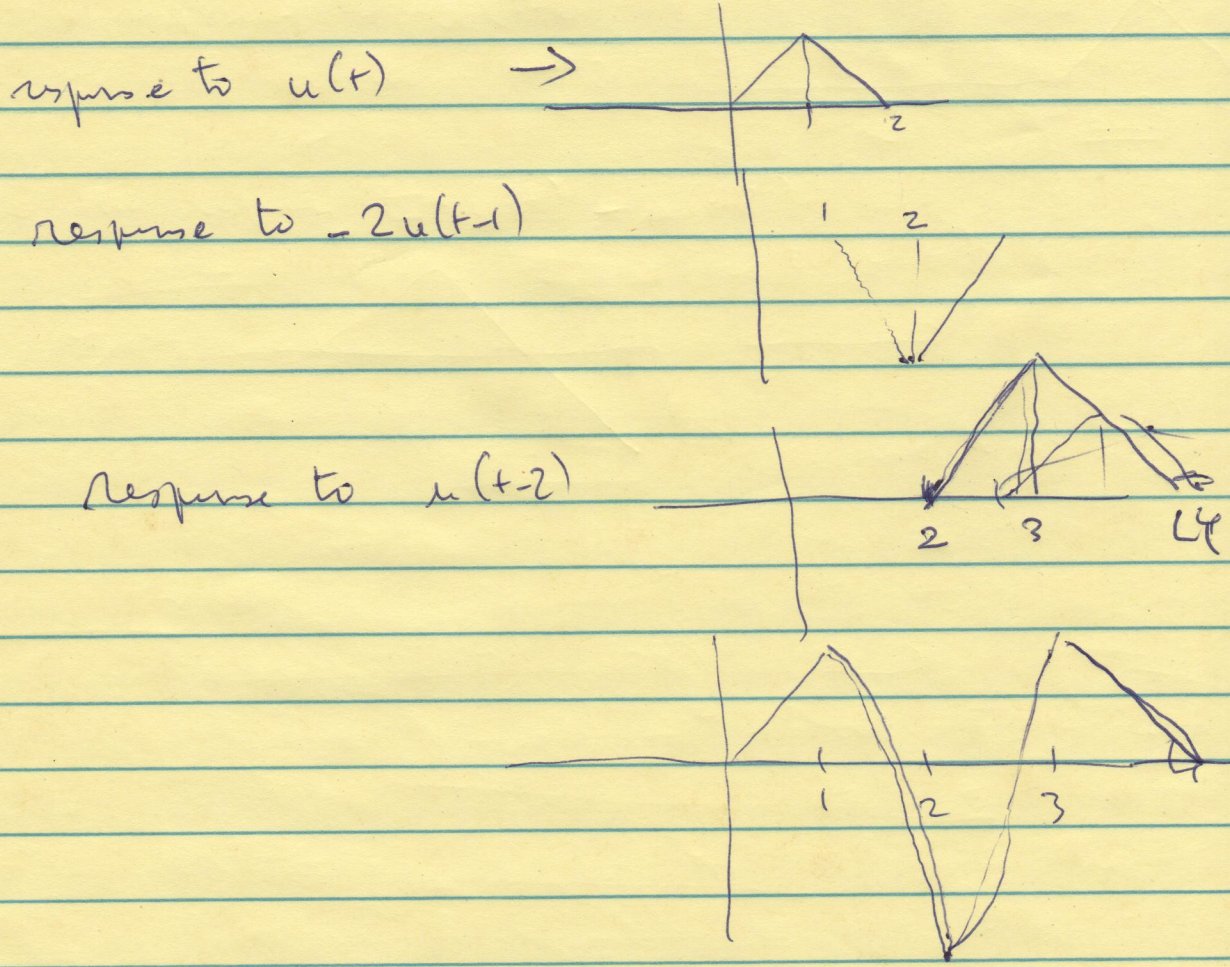 response to u(t) →
2
response to -2u(t-1)
1 2
response to u(t-2)
2 3 4
1 2 3 4